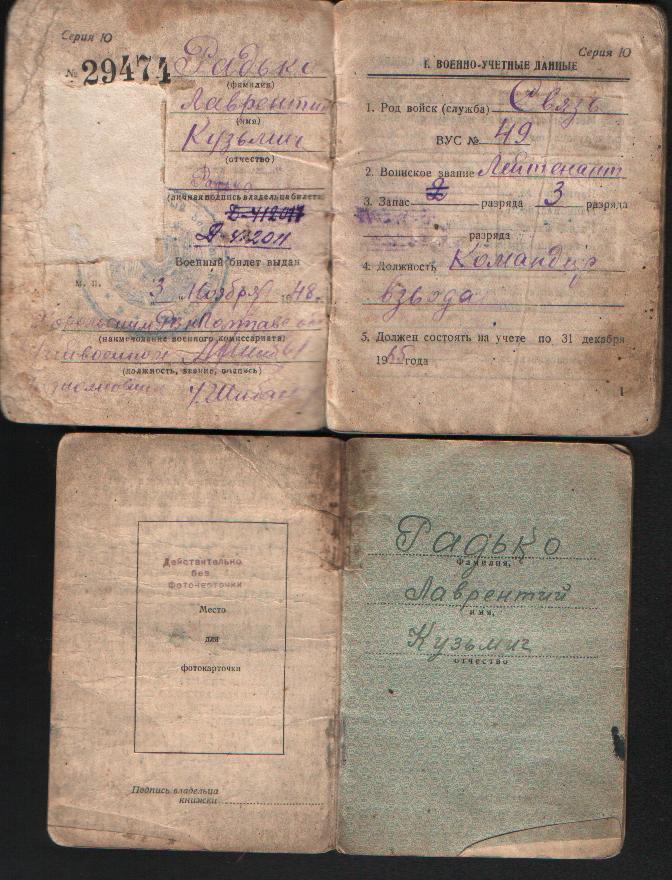 Серия Ю
№ 29474
Радько
(фамилия)
Лаврентий
(имя)
Кузьмич
(отчество)
(личная подпись владельца билета)
Д-412011
Военный билет выдан
М. П.
3 " Ноября 1948 г.
(наименование военного комиссариата)
(должность, звание, подпись)
Серия Ю
I. ВОЕННО-УЧЕТНЫЕ ДАННЫЕ
1. Род войск (служба) Связь
ВУС № 49
2. Воинское звание Лейтенант
3. Запас 2 разряда 3 разряда
разряда
4. Должность Командир
взвода
5. Должен состоять на учете по 31 декабря
1955 года
1
Действительно
без
фотокарточки
Место
для
фотокарточки
Подпись владельца
книжки
Радько
Фамилия,
Лаврентий
имя,
Кузьмич
отчество